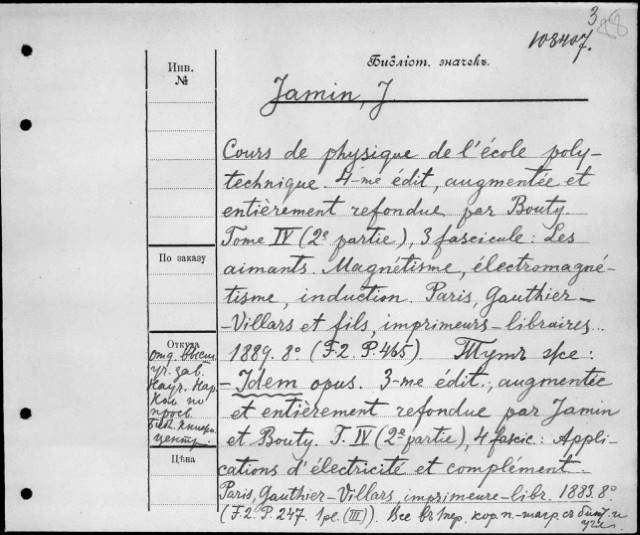 3
108407.
Инв.
№
Библіот. значекъ.
Jamin, J.
Cours de physique de l'école poly-
technique. 4-me édit., augmentée et
entièrement refondue par Bouty.
Tome IV (2e partie), 3 fascicule: Les
aimants. Magnétisme, électromagné-
tisme, induction. Paris, Gauthier-
-Villars et fils, imprimeurs-libraires...
1889. 8° (F.2. P.465). Тутъ же:
- Idem opus. 3-me édit., augmentée
et entièrement refondue par Jamin
et Bouty. T. IV (2e partie), 4 fascic.: Appli-
cations d'électricité et complément.
Paris, Gauthier-Villars, imprimeure-libr. 1883. 8°
(F.2. P.247. 1 pl. (III)). Все въ 1 пер. кор. п.-шагр. съ
По заказу
Откуда
отд. высш.
уч. зав.
Науч. Нар.
Ком. по
просв.
Библ. Книгри.
центр.
Цѣна